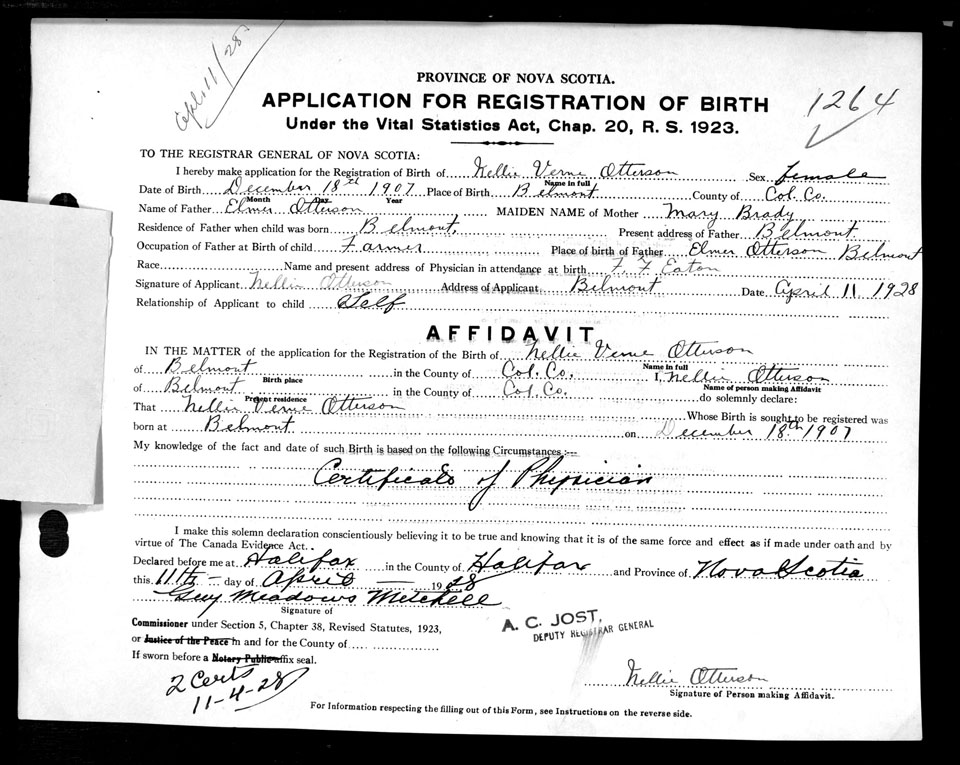 Apl. 11/28.
PROVINCE OF NOVA SCOTIA.
APPLICATION FOR REGISTRATION OF BIRTH
1264
Under the Vital Statistics Act, Chap. 20, R. S. 1923.
TO THE REGISTRAR GENERAL OF NOVA SCOTIA:
I hereby make application for the Registration of Birth of Nellie Verne Otterson Sex Female
Name in full
Date of Birth December 18th 1907 Place of Birth Belmont County of Col. Co.
Month Day Year
Name of Father Elmer Otterson MAIDEN NAME of Mother Mary Brady
Residence of Father when child was born Belmont. Present address of Father Belmont
Occupation of Father at Birth of child Farmer Place of birth of Father Elmer Otterson Belmont
Race Name and present address of Physician in attendance at birth F. F Eaton
Signature of Applicant Nellie Otterson Address of Applicant Belmont Date April 11. 1928
Relationship of Applicant to child Self
AFFIDAVIT
IN THE MATTER of the application for the Registration of the Birth of Nellie Verne Otterson
Name in full
of Belmont in the County of Col. Co. I, Nellie Otterson
Birth place Name of person making Affidavit
of Belmont in the County of Col. Co. do solemnly declare:
Present residence
That Nellie Verne Otterson Whose Birth is sought to be registered was
born at Belmont on December 18th 1907
My knowledge of the fact and date of such Birth is based on the following Circumstances :—
Certificate of Physician
I make this solemn declaration conscientiously believing it to be true and knowing that it is of the same force and effect as if made under oath and by
virtue of The Canada Evidence Act..
Declared before me at Halifax in the County of Halifax and Province of Nova Scotia
this 11th day of April 1928
Guy Meadows Mitchell
Signature of
Commissioner under Section 5, Chapter 38, Revised Statutes, 1923,
or Justice of the Peace in and for the County of
If sworn before a Notary Public affix seal.
A. C. JOST,
DEPUTY REGISTRAR GENERAL
2 Certs
11-4-28
Nellie Otterson
Signature of Person making Affidavit.
For Information respecting the filling out of this Form, see Instructions on the reverse side.